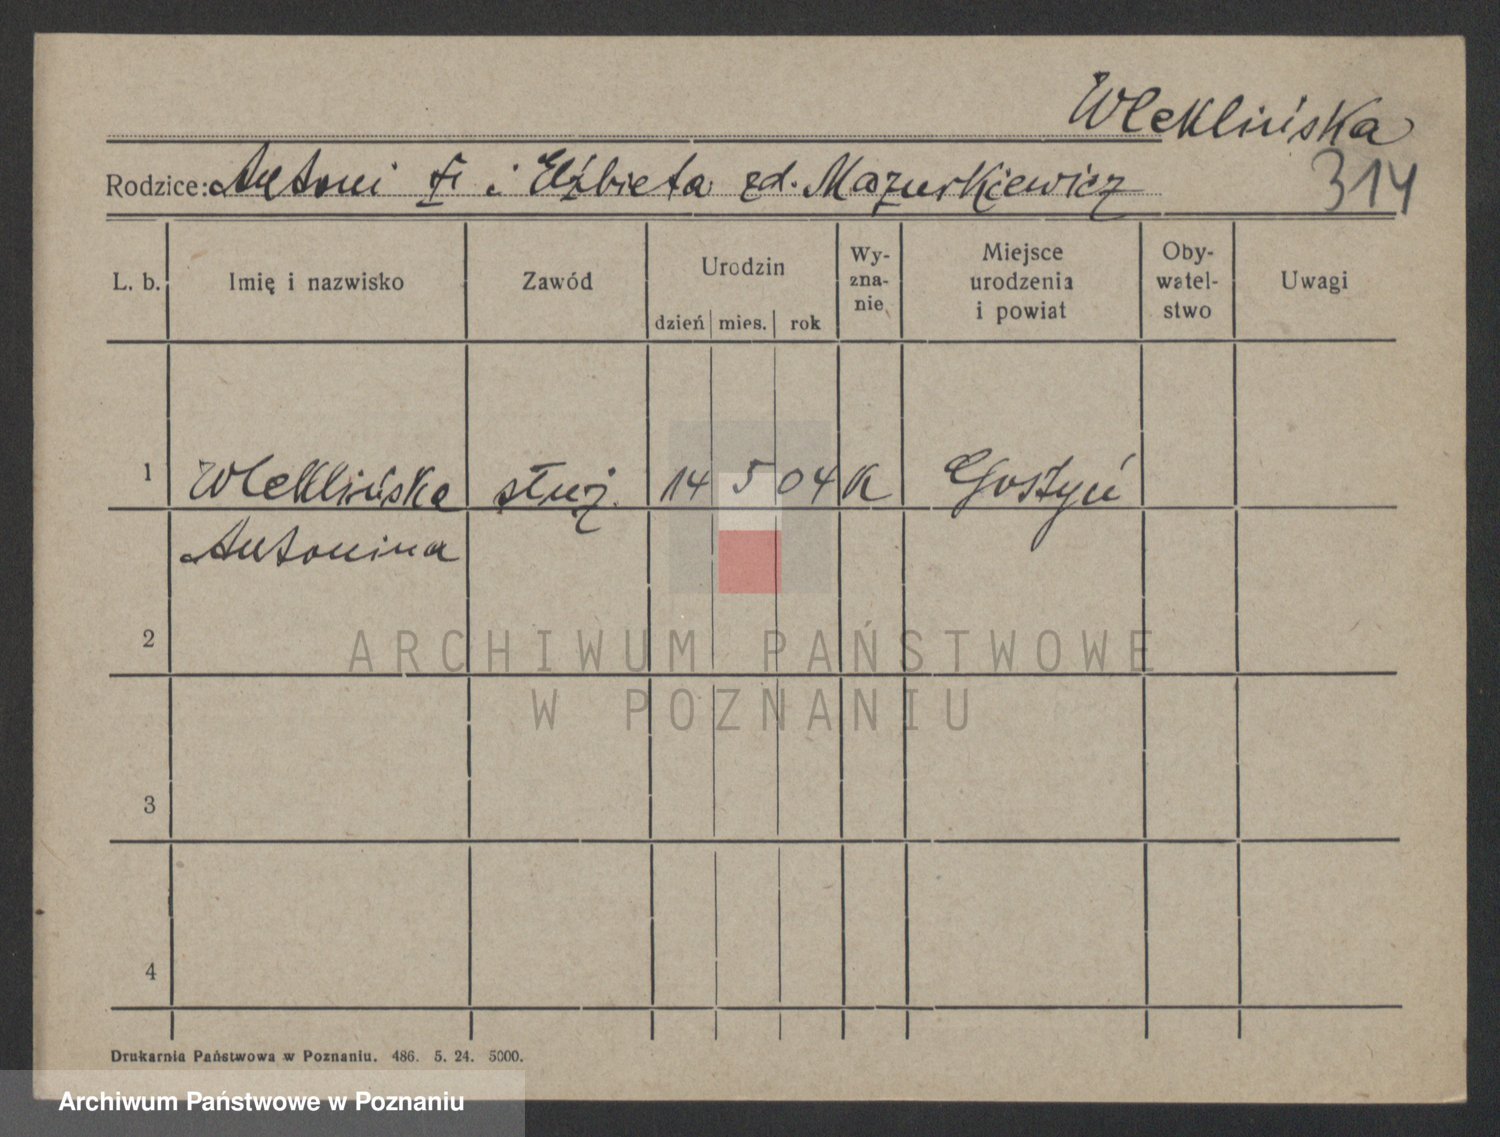 Wleklińska
Rodzice: Antoni i Elżbieta zd. Mazurkiewicz
314
L. b. Imię i nazwisko Zawód Urodzin Wy-zna-nie Miejsce urodzenia i powiat Oby-watel-stwo Uwagi
dzień mies. rok
1 Wleklińska służ. 14 5 04 K Gostyń
Antonina
2
ARCHIWUM PAŃSTWOWE
W POZNANIU
3
4
Drukarnia Państwowa w Poznaniu. 486. 5. 24. 5000.
Archiwum Państwowe w Poznaniu